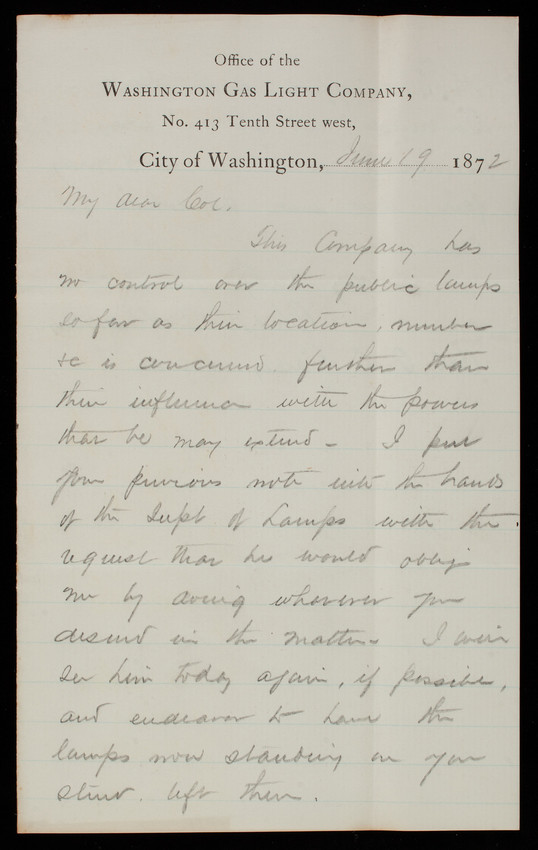 Office of the
Washington Gas Light Company,
No. 413 Tenth Street west,
City of Washington, June 19 1872
My dear Col.
This Company has
no control over the public lamps
so far as their location, number
&c is concerned further than
their influence with the powers
that be may extend - I put
your previous note into the hands
of the Supt of Lamps with the
request that he would oblige
me by doing whatever you
desired in the matter. I will
see him today again, if possible,
and endeavor to have the
lamps now standing on your
street. left there.